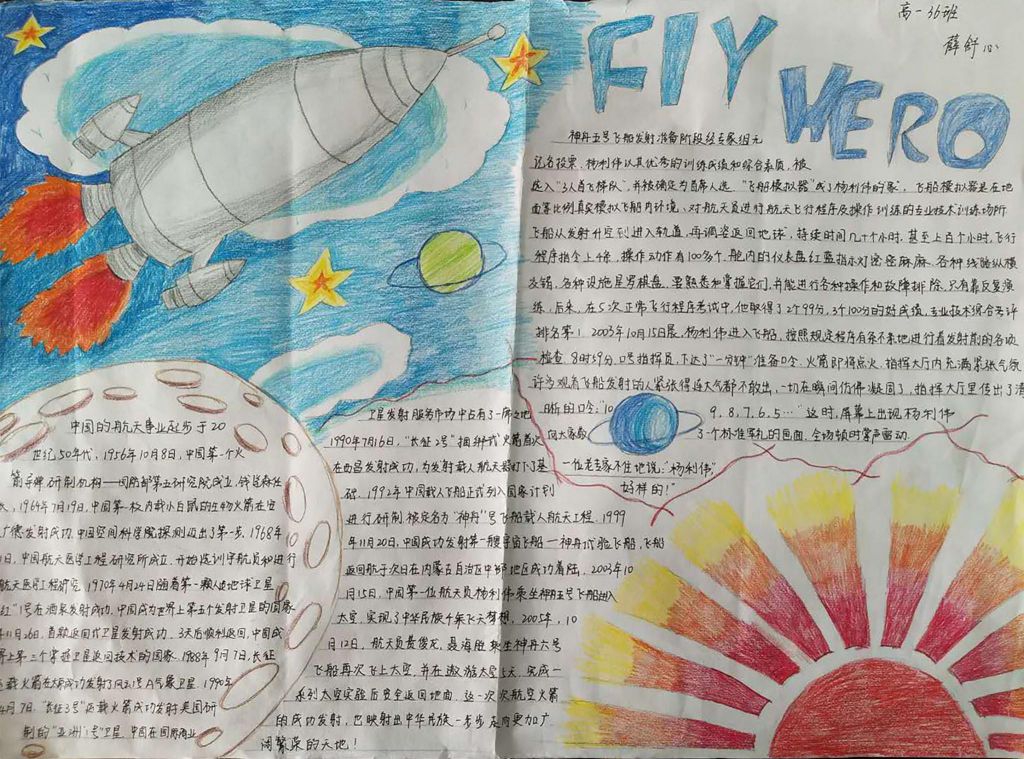 高一36班
薛舒心
FlY
HERO
神舟五号飞船发射准备阶段经专家组无
记名投票,杨利伟以其优秀的训练成绩和综合素质,被
选入“3人首飞梯队”,并被确定为首席人选.“飞船模拟器”成了杨利伟的家”,飞船模拟器是在地
面等比例真实模拟飞船内环境、对航天员进行航天飞行程序及操作训练的专业技术训练场所
飞船从发射升空到进入轨道,再调姿返回地球,持续时间几十个小时,甚至上百个小时,飞行
程序指令上千条,操作动作有100多个.舱内的仪表盘红蓝指示灯密密麻麻.各种线路纵横
交错,各种设施星罗棋盘.要熟悉和掌握它们,并能进行各种操作和故障排除,只有靠反复演
练,后来,在5次正常飞行程序考试中,他取得了2个99分,3个100分的好成绩,专业技术综合考评
排名第1.2003年10月15日晨.杨利伟进入飞船,按照规定程序有条不紊地进行着发射前的各项
检查.8时59分.0号指挥员,下达了“一分钟”准备口令.火箭即将点火.指挥大厅内充满紧张气氛
许多观看飞船发射的人紧张得连大气都不敢出,一切在瞬间仿佛凝固了,指挥大厅里传出了清
晰的口令:“10 9,8,7,6,5…”这时,屏幕上出现杨利伟
向大家敬了个标准军礼的画面.全场顿时掌声雷动.
一位老专家不住地说:“杨利伟”
好样的!”
中国的航天事业起步于20
世纪50年代.1956年10月8日,中国第一个火
箭导弹研制机构——国防部第五研究院成立,钱学森任
1964年7月19日,中国第一枚内载小白鼠的生物火箭在安
广德发射成功.中国空间科学院探测迈出了第一步.1968年
1日,中国航天医学工程研究所成立,开始选训宇航员和进行
航天医学工程研究.1970年4月24日随着第一颗人造地球卫星
红”1号在酒泉发射成功.中国成为世界上第五个发射卫星的国家
年11月26日,首颗返回式卫星发射成功.3天后顺利返回,中国成
界上第三个掌握卫星返回技术的国家.1988年9月7日,长征
运载火箭在太原成功发射了风云1号A气象卫星.1990年
4月7日.“长征3号”运载火箭成功发射美国研
制的“亚洲1号”卫星.中国在国际商业
卫星发射服务市场中占有了一席之地
1990年7月16日,“长征2号”捆绑式火箭首次
在西昌发射成功,为发射载人航天器打下了基
础.1992年中国载人飞船正式列入国家计划
进行研制,被定名为“神舟”号飞船载人航天工程.1999
年11月20日,中国成功发射第一艘宇宙飞船—神舟试验飞船,飞船
返回舱于次日在内蒙古自治区中部地区成功着陆.2003年10
月15日,中国第一位航天员杨利伟乘坐神舟五号飞船进入
太空,实现了中华民族千年飞天梦想.2005年,10
月12日,航天员费俊龙、聂海胜乘坐神舟六号
飞船再次飞上太空,并在遨游太空五天,完成一
系列太空实验后安全返回地面.这一次次航空火箭
的成功发射,已映射出中华民族一步步走向更加广
阔繁荣的天地!